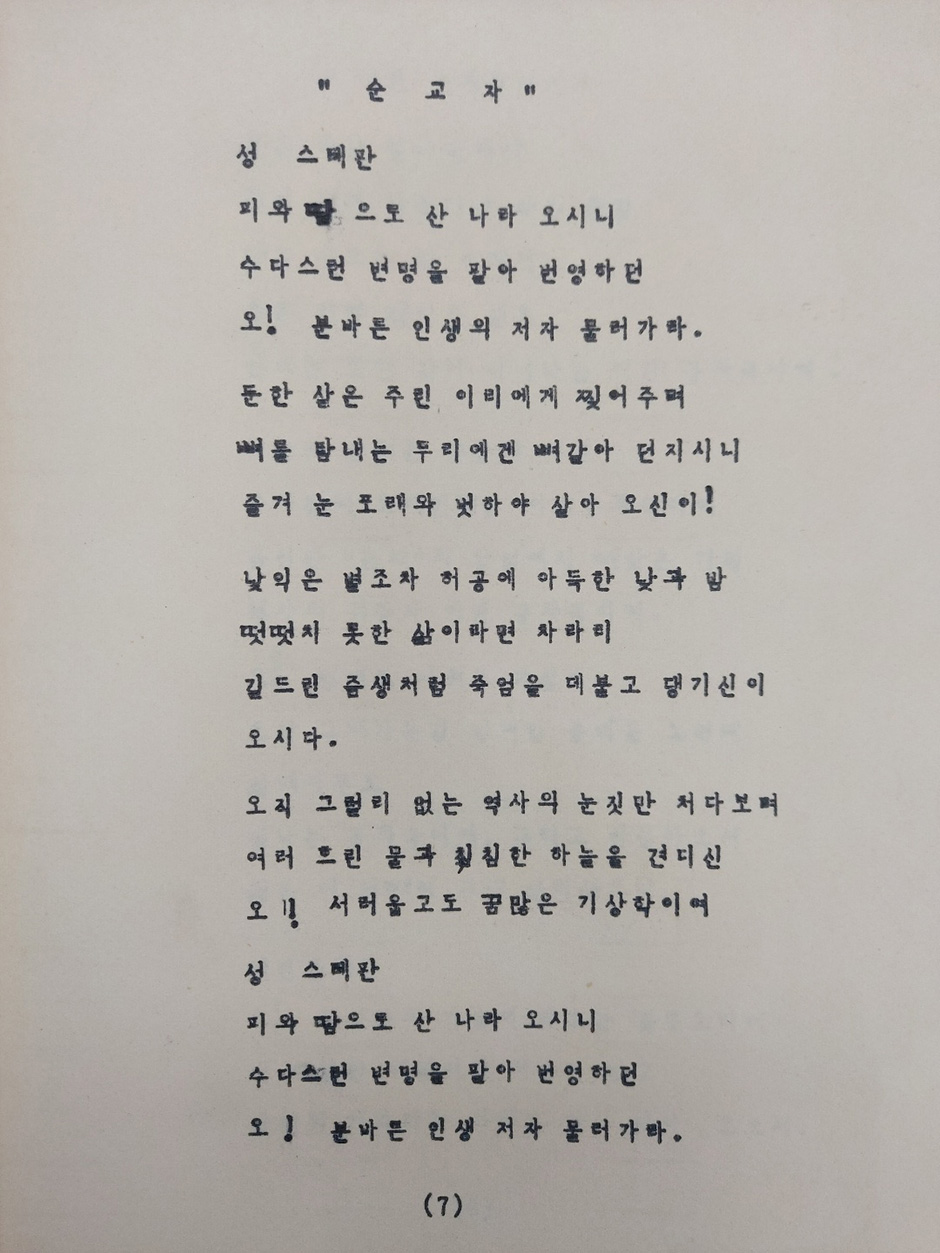 " 순 교 자 "
성 스테판
피와 땀으로 산 나라 오시니
수다스런 변명을 팔아 번영하던
오! 분바른 인생의 저자 물러가라.
둔한 살은 주린 이리에게 찢어주며
뼈를 탐내는 무리에겐 뼈갈아 던지시니
즐겨 눈 포래와 벗하야 살아 오신이!
낯익은 별조차 허공에 아득한 낮과 밤
떳떳치 못한 삶이라면 차라리
길드린 즘생처럼 죽엄을 데불고 댕기신이
오시다.
오직 그럴리 없는 역사의 눈짓만 처다보며
여러 흐린 물과 침침한 하늘을 견디신
오!! 서러웁고도 꿈많은 기상학이여
성 스테판
피와 땀으로 산 나라 오시니
수다스런 변명을 팔아 번영하던
오! 분바른 인생 저자 물러가라.
(7)